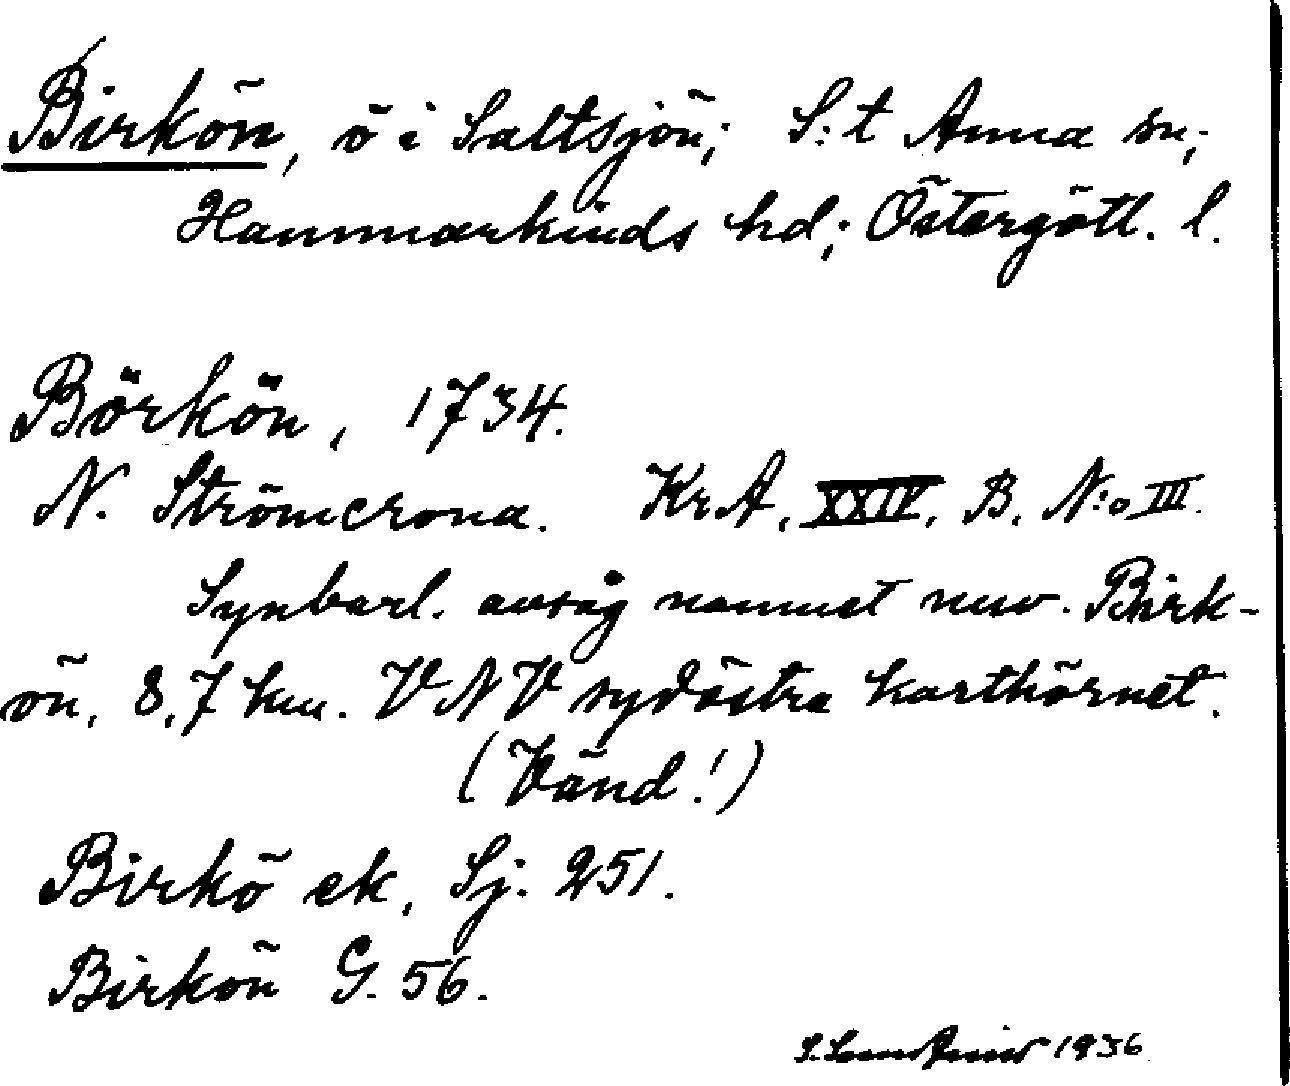 Birkön, ö i Saltsjön; S:t Anna sn;
Hammarkinds hd; Östergötl. l.
Börkön, 1734.
N. Strömcrona. Kr.A. XXIV. B. N:o III.
Synbarl. avsåg namnet nuv. Birk-
ön, 8,7 km. VNV sydöstra karthörnet.
(Vänd!)
Birkö ek, Sj. 251.
Birkön G. 56.
S. 1936